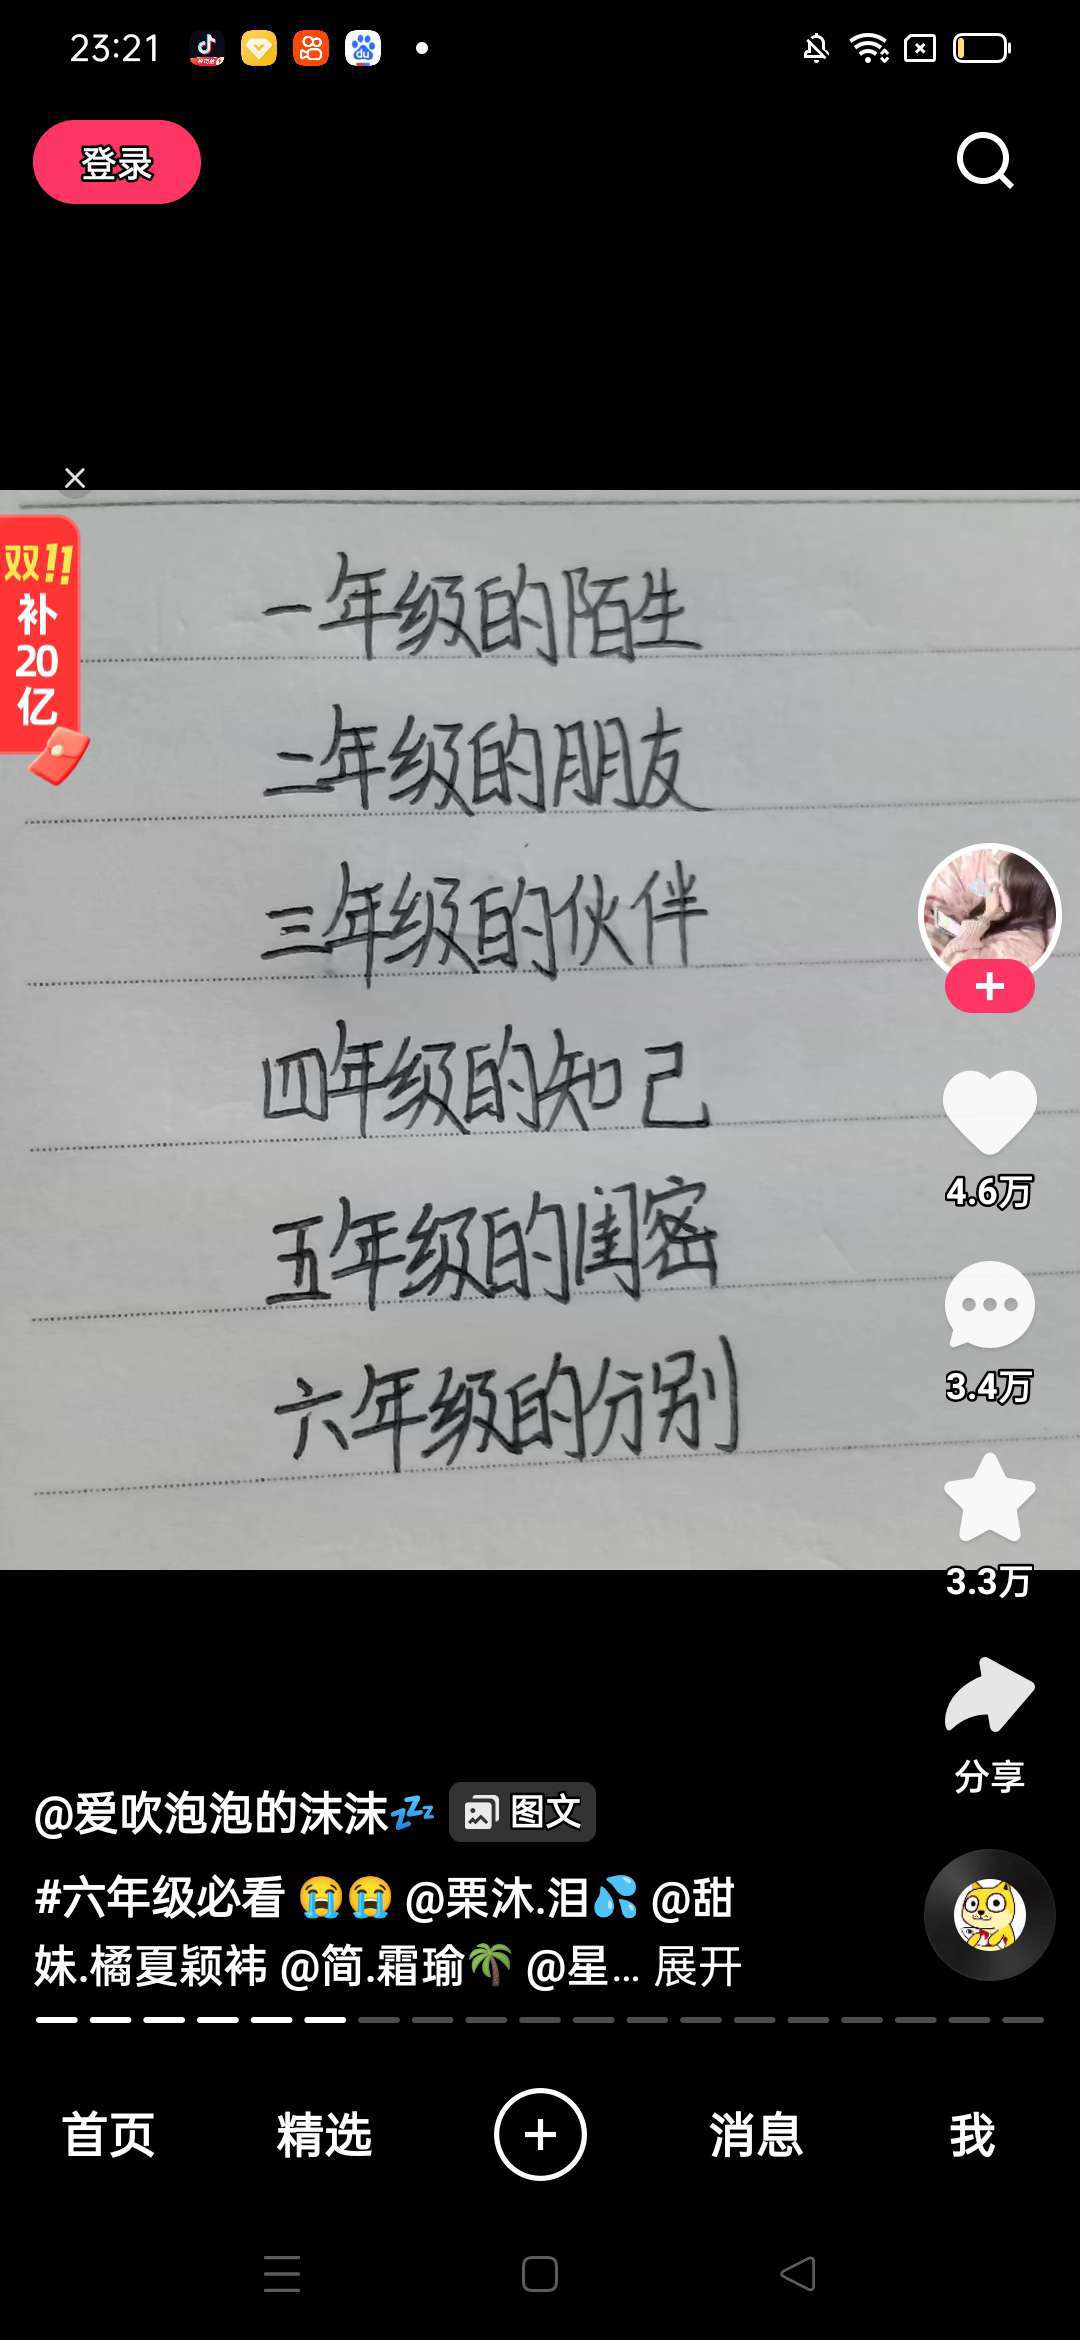 23:21
登录
双11
补
20
亿
一年级的陌生
二年级的朋友
三年级的伙伴
四年级的知己
五年级的闺密
六年级的分别
4.6万
3.4万
3.3万
分享
@爱吹泡泡的沫沫💤 图文
#六年级必看 😭😭 @栗沐.泪💦 @甜
妹.橘夏颖袆 @简.霜瑜🌴 @星... 展开
首页 精选 消息 我